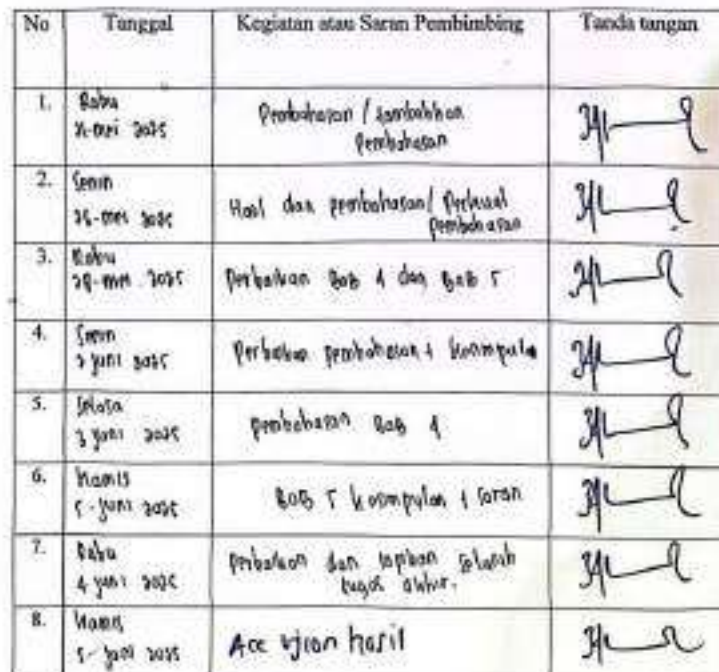 No Tanggal Kegiatan atau Saran Pembimbing Tanda tangan
1. Rabu
21-mei 2025
Pembahasan / tambahkan
Pembahasan
2. Senin
26-mei 2025
Hasil dan pembahasan / Perkuat
pembahasan
3. Rabu
28-mei 2025
Perbaikan Bab 4 dan Bab 5
4. Senin
2 juni 2025
Perbaikan pembahasan + kesimpula
5. Selasa
3 juni 2025
pembahasan Bab 4
6. Kamis
5-juni 2025
BAB 5 kesimpulan + saran
7. Rabu
4 juni 2025
perbaikan dan
tugas akhir.
8. Kamis
5-juni 2025
Acc ujian hasil